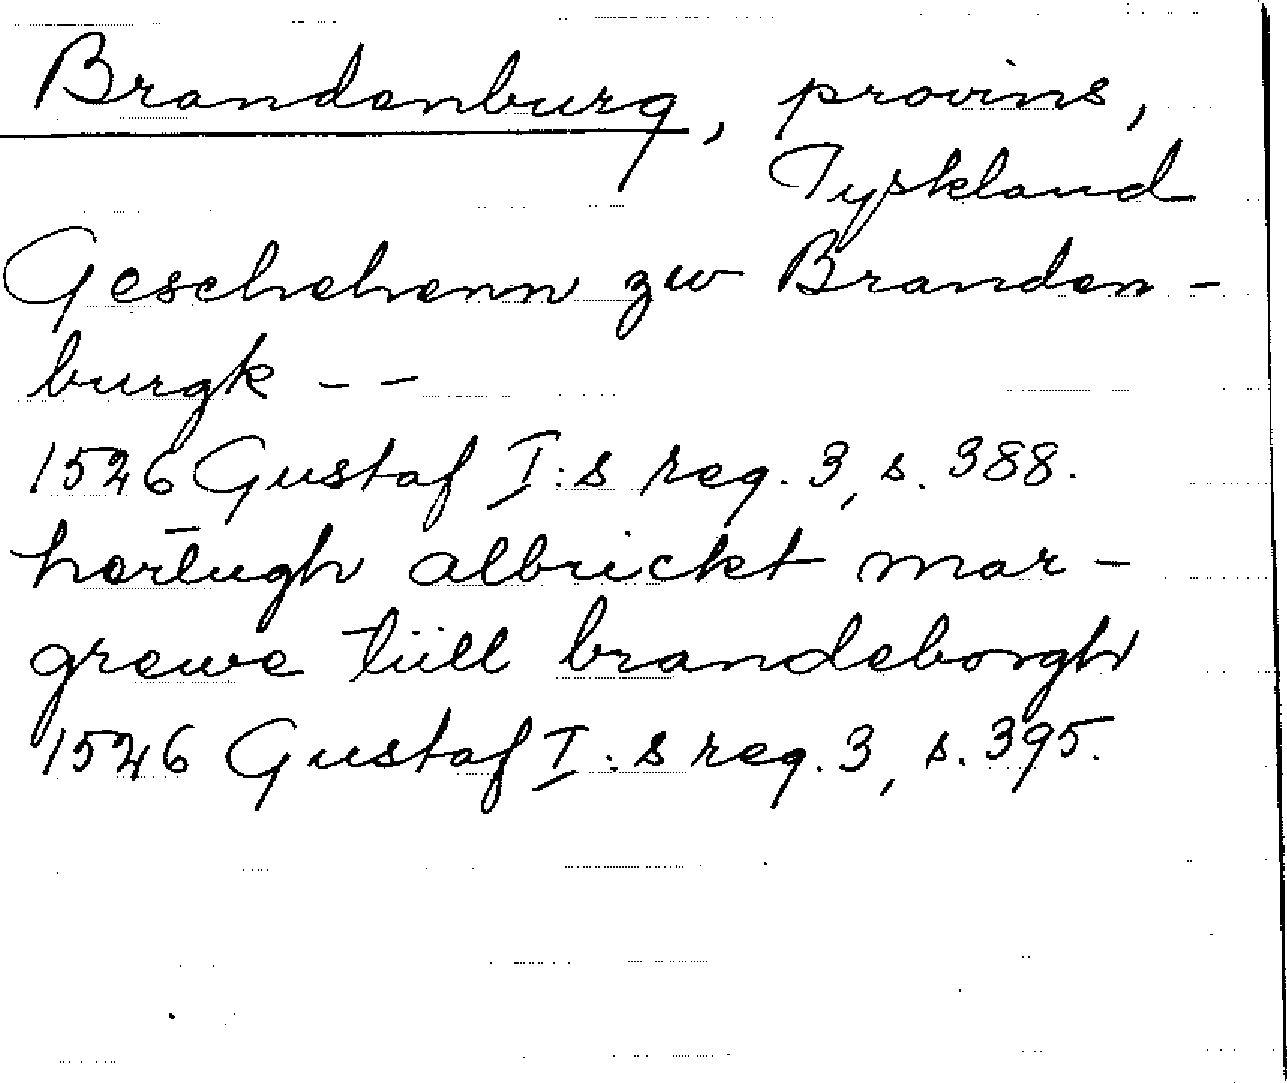 Brandenburg, provins,
Tyskland
Geschehenn zw Branden-
burgk --
1526 Gustaf I:s reg. 3, s. 388.
hertugh albrickt mar-
grewe tiill brandeborgh
1526 Gustaf I:s reg. 3, s. 395.